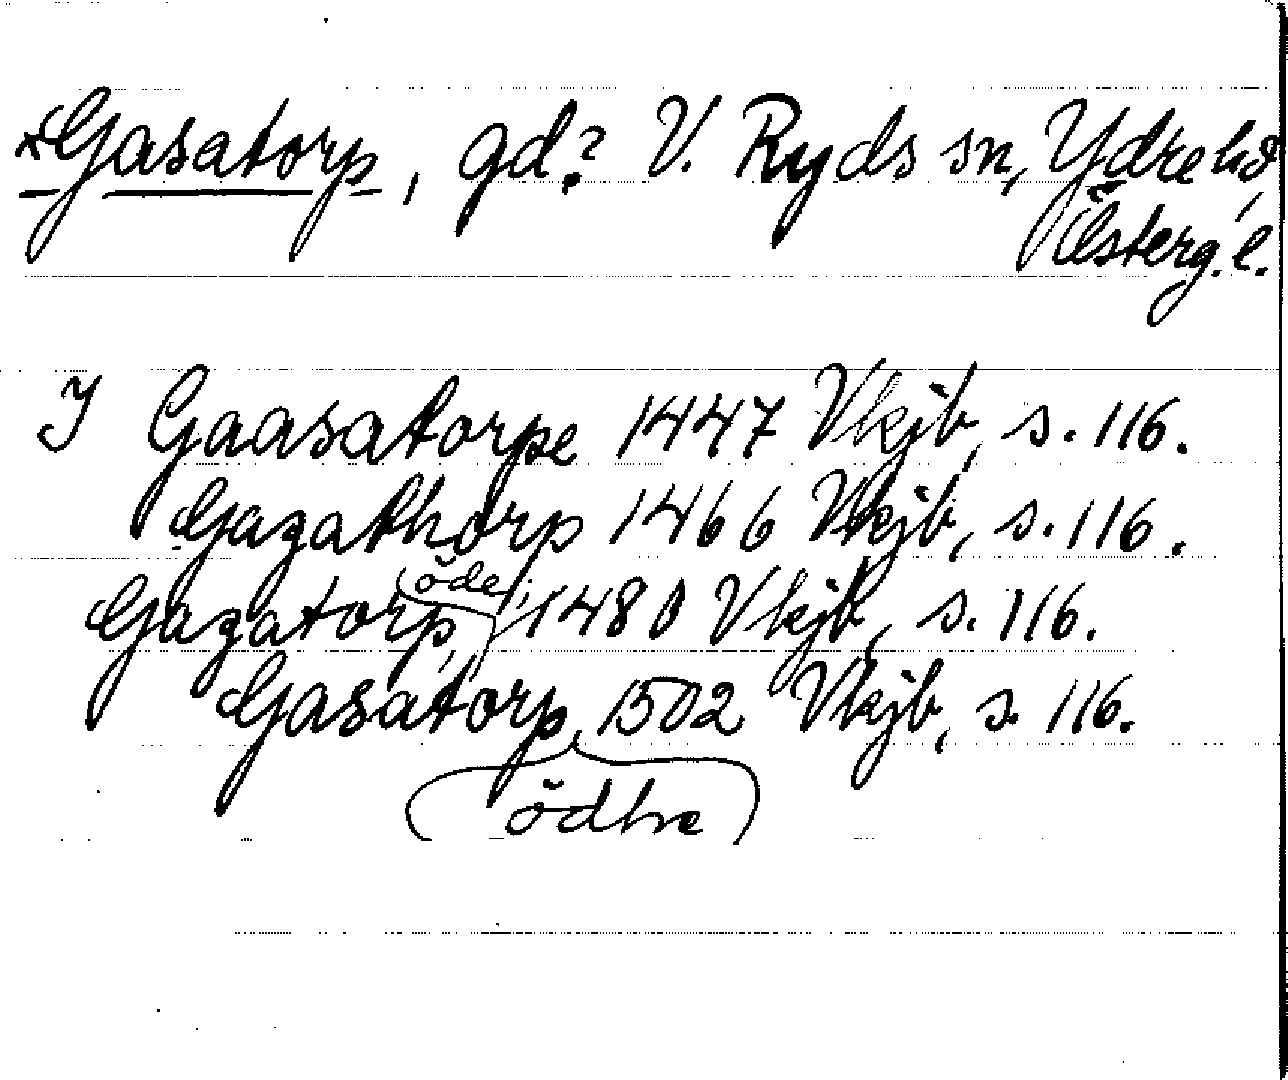 ×Gasatorp, gd? V. Ryds sn, Ydre hd,
Österg. l.
I Gaasatorpe 1447 Vkjb, s. 116.
Gazathorp 1466 Vkjb, s. 116.
Gazatorp, (öde) 1480 Vkjb, s. 116.
Gasatorp, 1502 Vkjb, s. 116.
(ödhe)